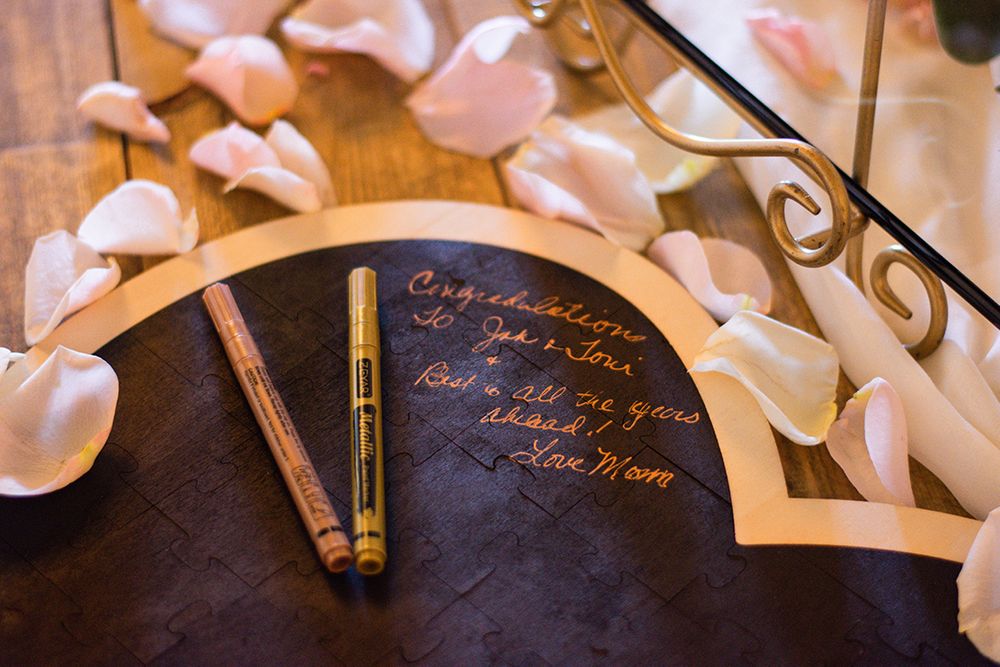 Congradulations
To Jak & Toni
&
Best in all the years
ahead!
Love Mom
ZEYAR
Metallic